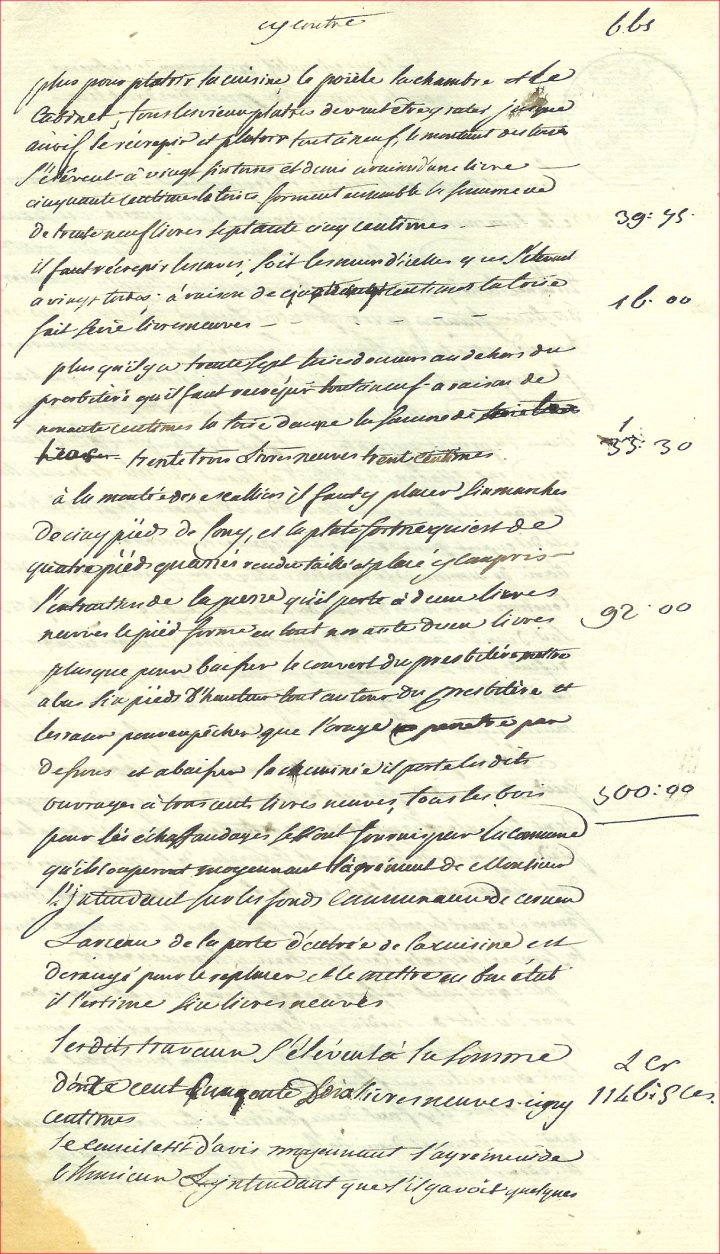 cy contre 661
plus pour platrir la cuisine le poièle la chambre et le
Cabinet, tous les vieux platres devront être grates jusque
au vif le récrepir et platrir tout à neuf, le montant des toises
s'élèvent à vingt six toises et demi à raison d'une livre
cinquante centimes la toise forment ensemble la somme de
de trente neuf livres septante cinq centimes - 39: 75.
il faut récrepir les caves, soit les murs d'icelles qui s'élèvent
a vingt toises à raison de centimes la toise
fait seize livres neuves - 16. 00
plus qu'il y a trente sept toises de murs au dehors du
presbitère qu'il faut recrépir tout à neuf à raison de
nonante centimes la toise donne la somme de
trente trois Livres neuves trent centimes 33. 30
à la montée des escalliers il faut y placer six marches
De cinq pièds de long, et la plate forme qui est de
quatre pièds quarrés rendue taillé et placé y compris
l'extraction de la pierre qu'il porte à deux livres
neuves le pièd forme en tout nonante deux livres 92. 00
plus que pour baisser le couvert du presbitère mettre
a bas six pièds d'hauteur tout au tour du presbitère et
pour empêcher que l'orage penetre par
dessous et abaisser la cheminée il porte les dits
ouvrages à trois cents livres neuves, tous les bois 300: 00
pour les échaffaudages seront fournis par la comune
qu'ils couperont moyennant l'agrément de Monsieur
L'jntendant sur les fonds Communaux de
Larceau de la porte d'entrée de la cuisine est
derangé pour le replacer et le mettre en bon état
il l'estime six livres neuves
Lesdits travaux s'élèvent à la somme
cent livres neuves cinq
centimes
le conseil est d'avis moyennant l'agrément de
Monsieur L'jntendant que s'il y avoit quelques